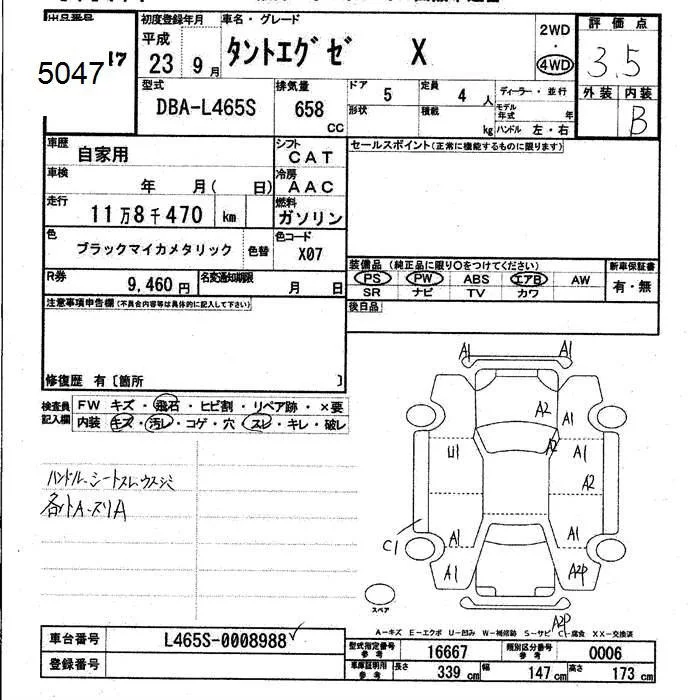 出品番号
5047 17
初度登録年月
平成
23年 9月
車名・グレード
タントエグゼ X
2WD
・
4WD
評価点
3.5
外装 内装
B
型式
DBA-L465S
排気量
658
CC
ドア 5
定員 4 人
形状
積載 kg
ディーラー・並行
モデル年式 年
ハンドル 左・右
車歴
自家用
シフト
CAT
セールスポイント(正常に機能するものに限ります)
車検
年 月( 日)
冷房
AAC
走行
11万8千470 km
燃料
ガソリン
色
ブラックマイカメタリック
色替
色コード
X07
装備品 (純正品に限り○をつけてください)
PS PW ABS エアB AW
SR ナビ TV カワ
新車保証書
有・無
R券
9,460円
名変通知期限
月 日
後日品
注意事項申告欄(不具合内容等は具体的に記入して下さい)
修復歴 有〔箇所 〕
検査員記入欄
FW キズ・飛石・ヒビ割・リペア跡・×要
内装 キズ・汚レ・コゲ・穴・スレ・キレ・破レ
ハンドル、シートスレ、ウスシミ
各ソトA・スリA
A1 A1
A2 A1
U1 A2 A1
A2
C1 A1 A1
A1 A2P
スペア
A2P
A―キズ E―エクボ U―凹み W―補修跡 S―サビ C―腐食 XX―交換済
車台番号
L465S-0008988
登録番号
型式指定番号 参考 16667
類別区分番号 参考 0006
車庫証明用 参考 長さ 339 cm 幅 147 cm 高さ 173 cm